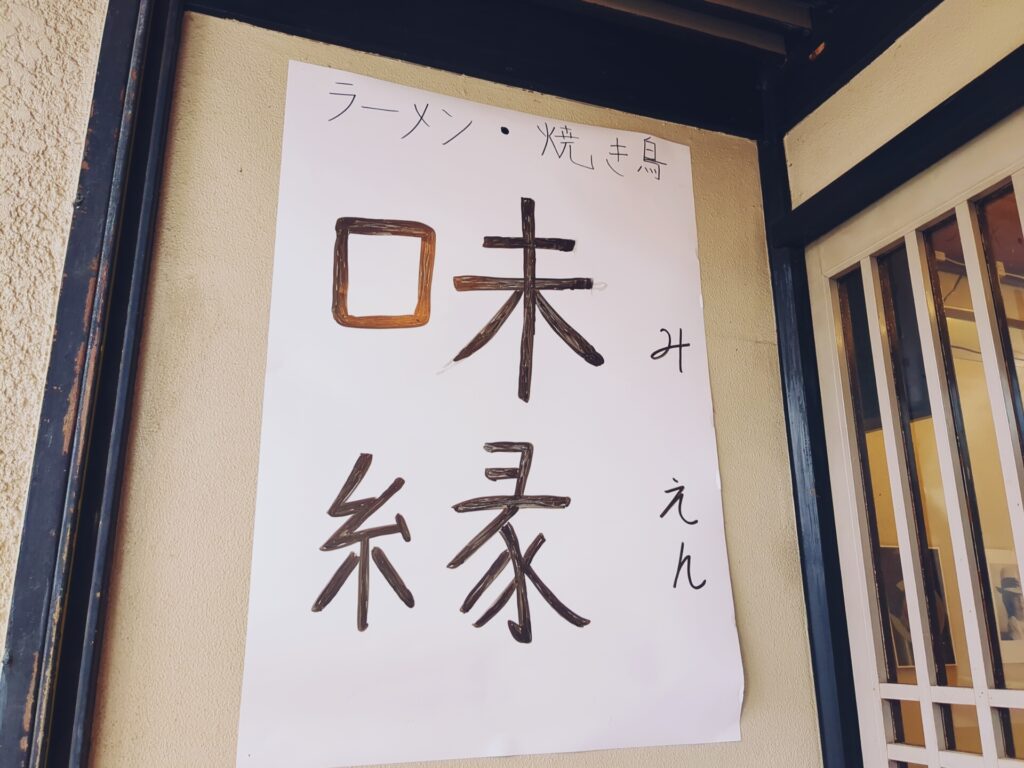 ラーメン・焼き鳥
味縁
みえん